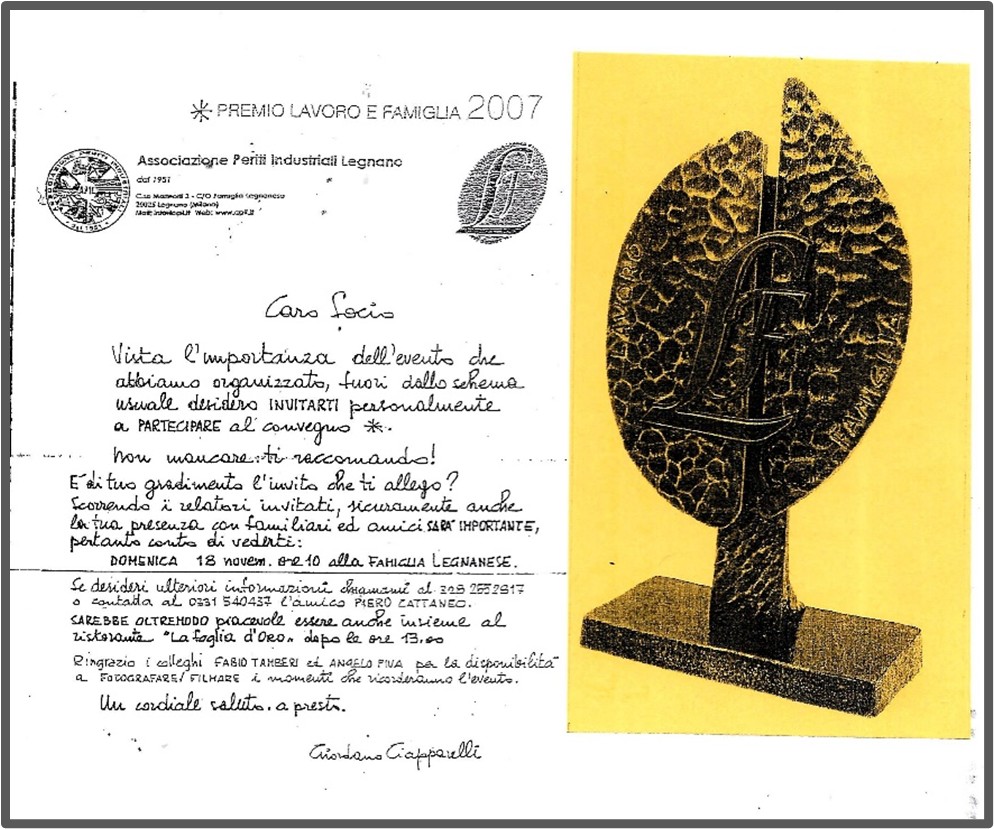 ✳ PREMIO LAVORO E FAMIGLIA 2007
Associazione Periti Industriali Legnano
dal 1951
C.so Matteotti 3 - C/O Famiglia Legnanese
20025 Legnano (Milano)
Caro Socio
Vista l'importanza dell'evento che
abbiamo organizzato, fuori dallo schema
usuale desidero INVITARTI personalmente
a PARTECIPARE al convegno ✳.
Non mancare ti raccomando!
È di tuo gradimento l'invito che ti allego?
Scorrendo i relatori invitati, sicuramente anche
la tua presenza con familiari ed amici SARÀ IMPORTANTE,
pertanto conto di vederti:
DOMENICA 18 novem. ore 10 alla FAMIGLIA LEGNANESE.
Se desideri ulteriori informazioni chiamami al
o contatta al 0331 540437 l'amico PIERO CATTANEO.
SAREBBE OLTREMODO piacevole essere anche insieme al
ristorante "La foglia d'ORO" dopo le ore 13.00
Ringrazio i colleghi FABIO TAMBERI ed ANGELO PIVA per la disponibilità
a FOTOGRAFARE/FILMARE i momenti che ricorderanno l'evento.
Un cordiale saluto. a presto.
Giordano Ciapparelli
LAVORO
FAMIGLIA